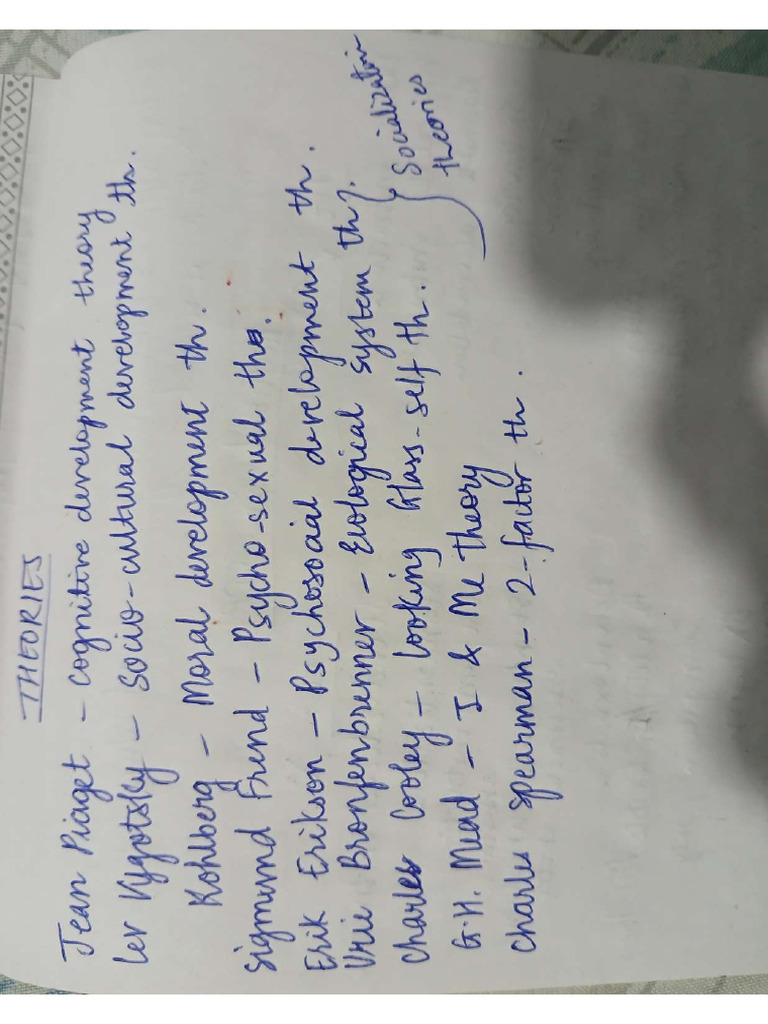 THEORIES
Jean Piaget - cognitive development theory
Lev Vygotsky - Socio-cultural development th.
Kohlberg - Moral development th.
Sigmund Frend - Psycho-sexual th.
Erik Erikson - Psychosocial development th.
Urie Bronfenbrenner - Ecological system th.
Charles Cooley - looking Glass-self th.
G.H. Mead - I & Me theory
Charles Spearman - 2-factor th.
Socialization
theories